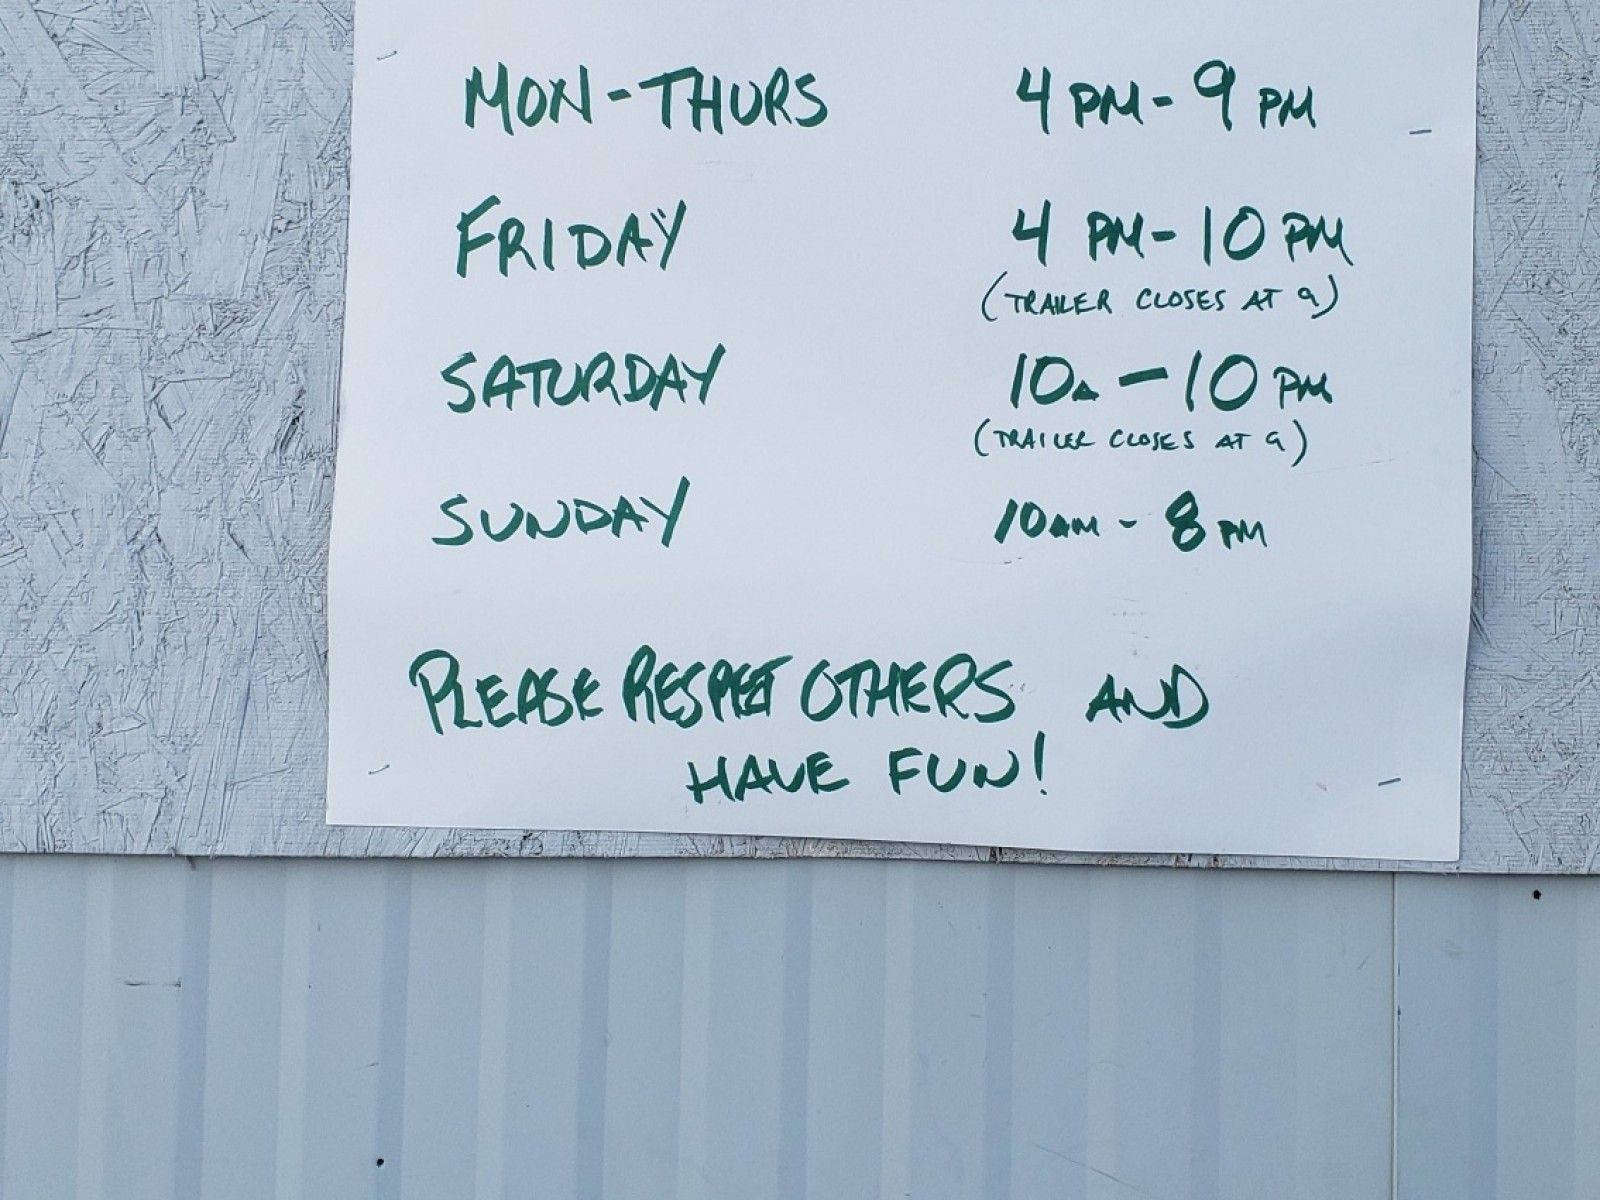 MON-THURS 4 PM - 9 PM
FRIDAY 4 PM - 10 PM
(TRAILER CLOSES AT 9)
SATURDAY 10A - 10 PM
(TRAILER CLOSES AT 9)
SUNDAY 10AM - 8 PM
PLEASE RESPECT OTHERS AND
HAVE FUN!